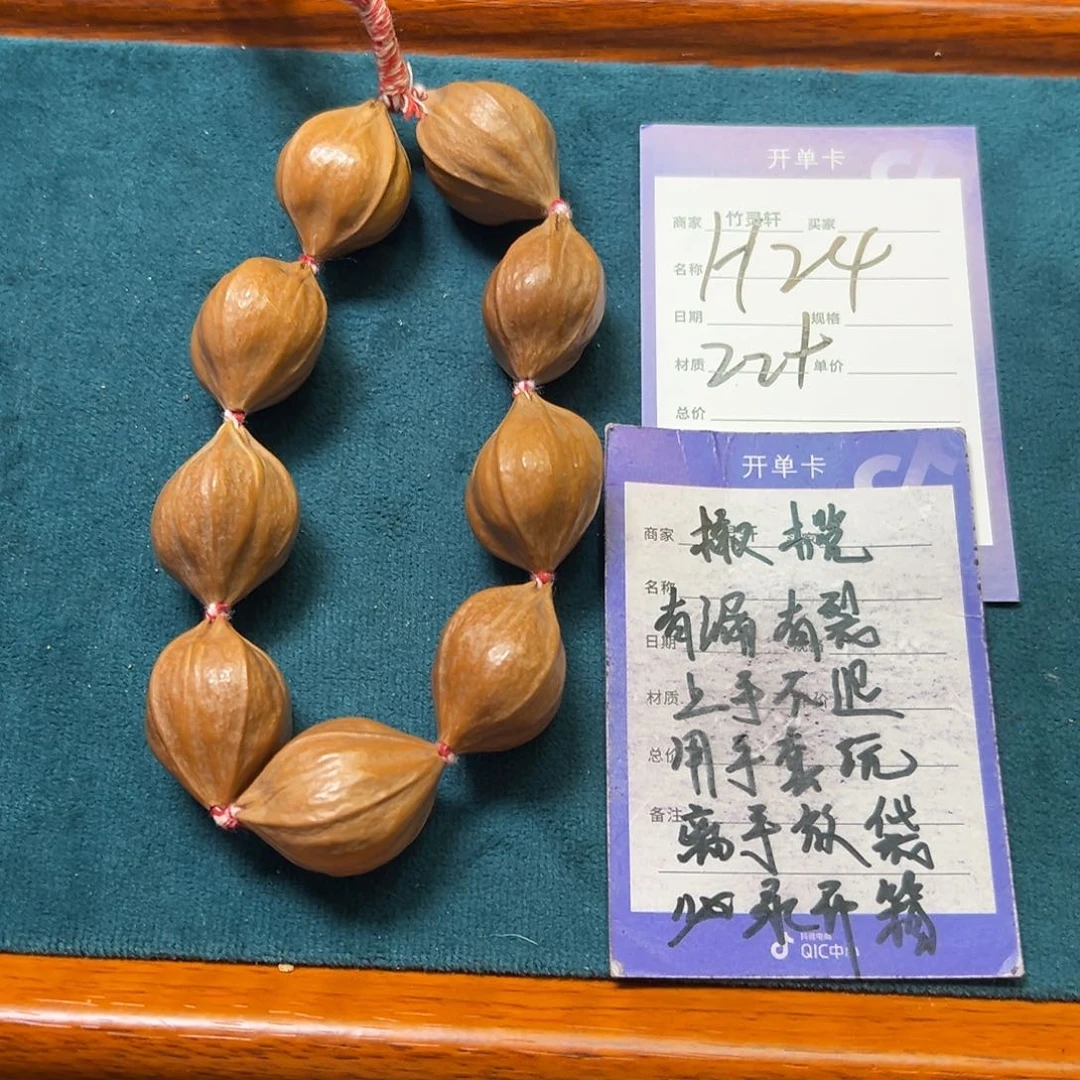 开单卡
商家 竹灵轩 买家
名称 H24
日期 规格
材质 22+ 单价
总价
开单卡
商家 橄榄
名称
日期 有漏有裂
材质 上手不退
总价 用手套玩
备注 离手放袋
必录开箱
抖音电商
QIC中心